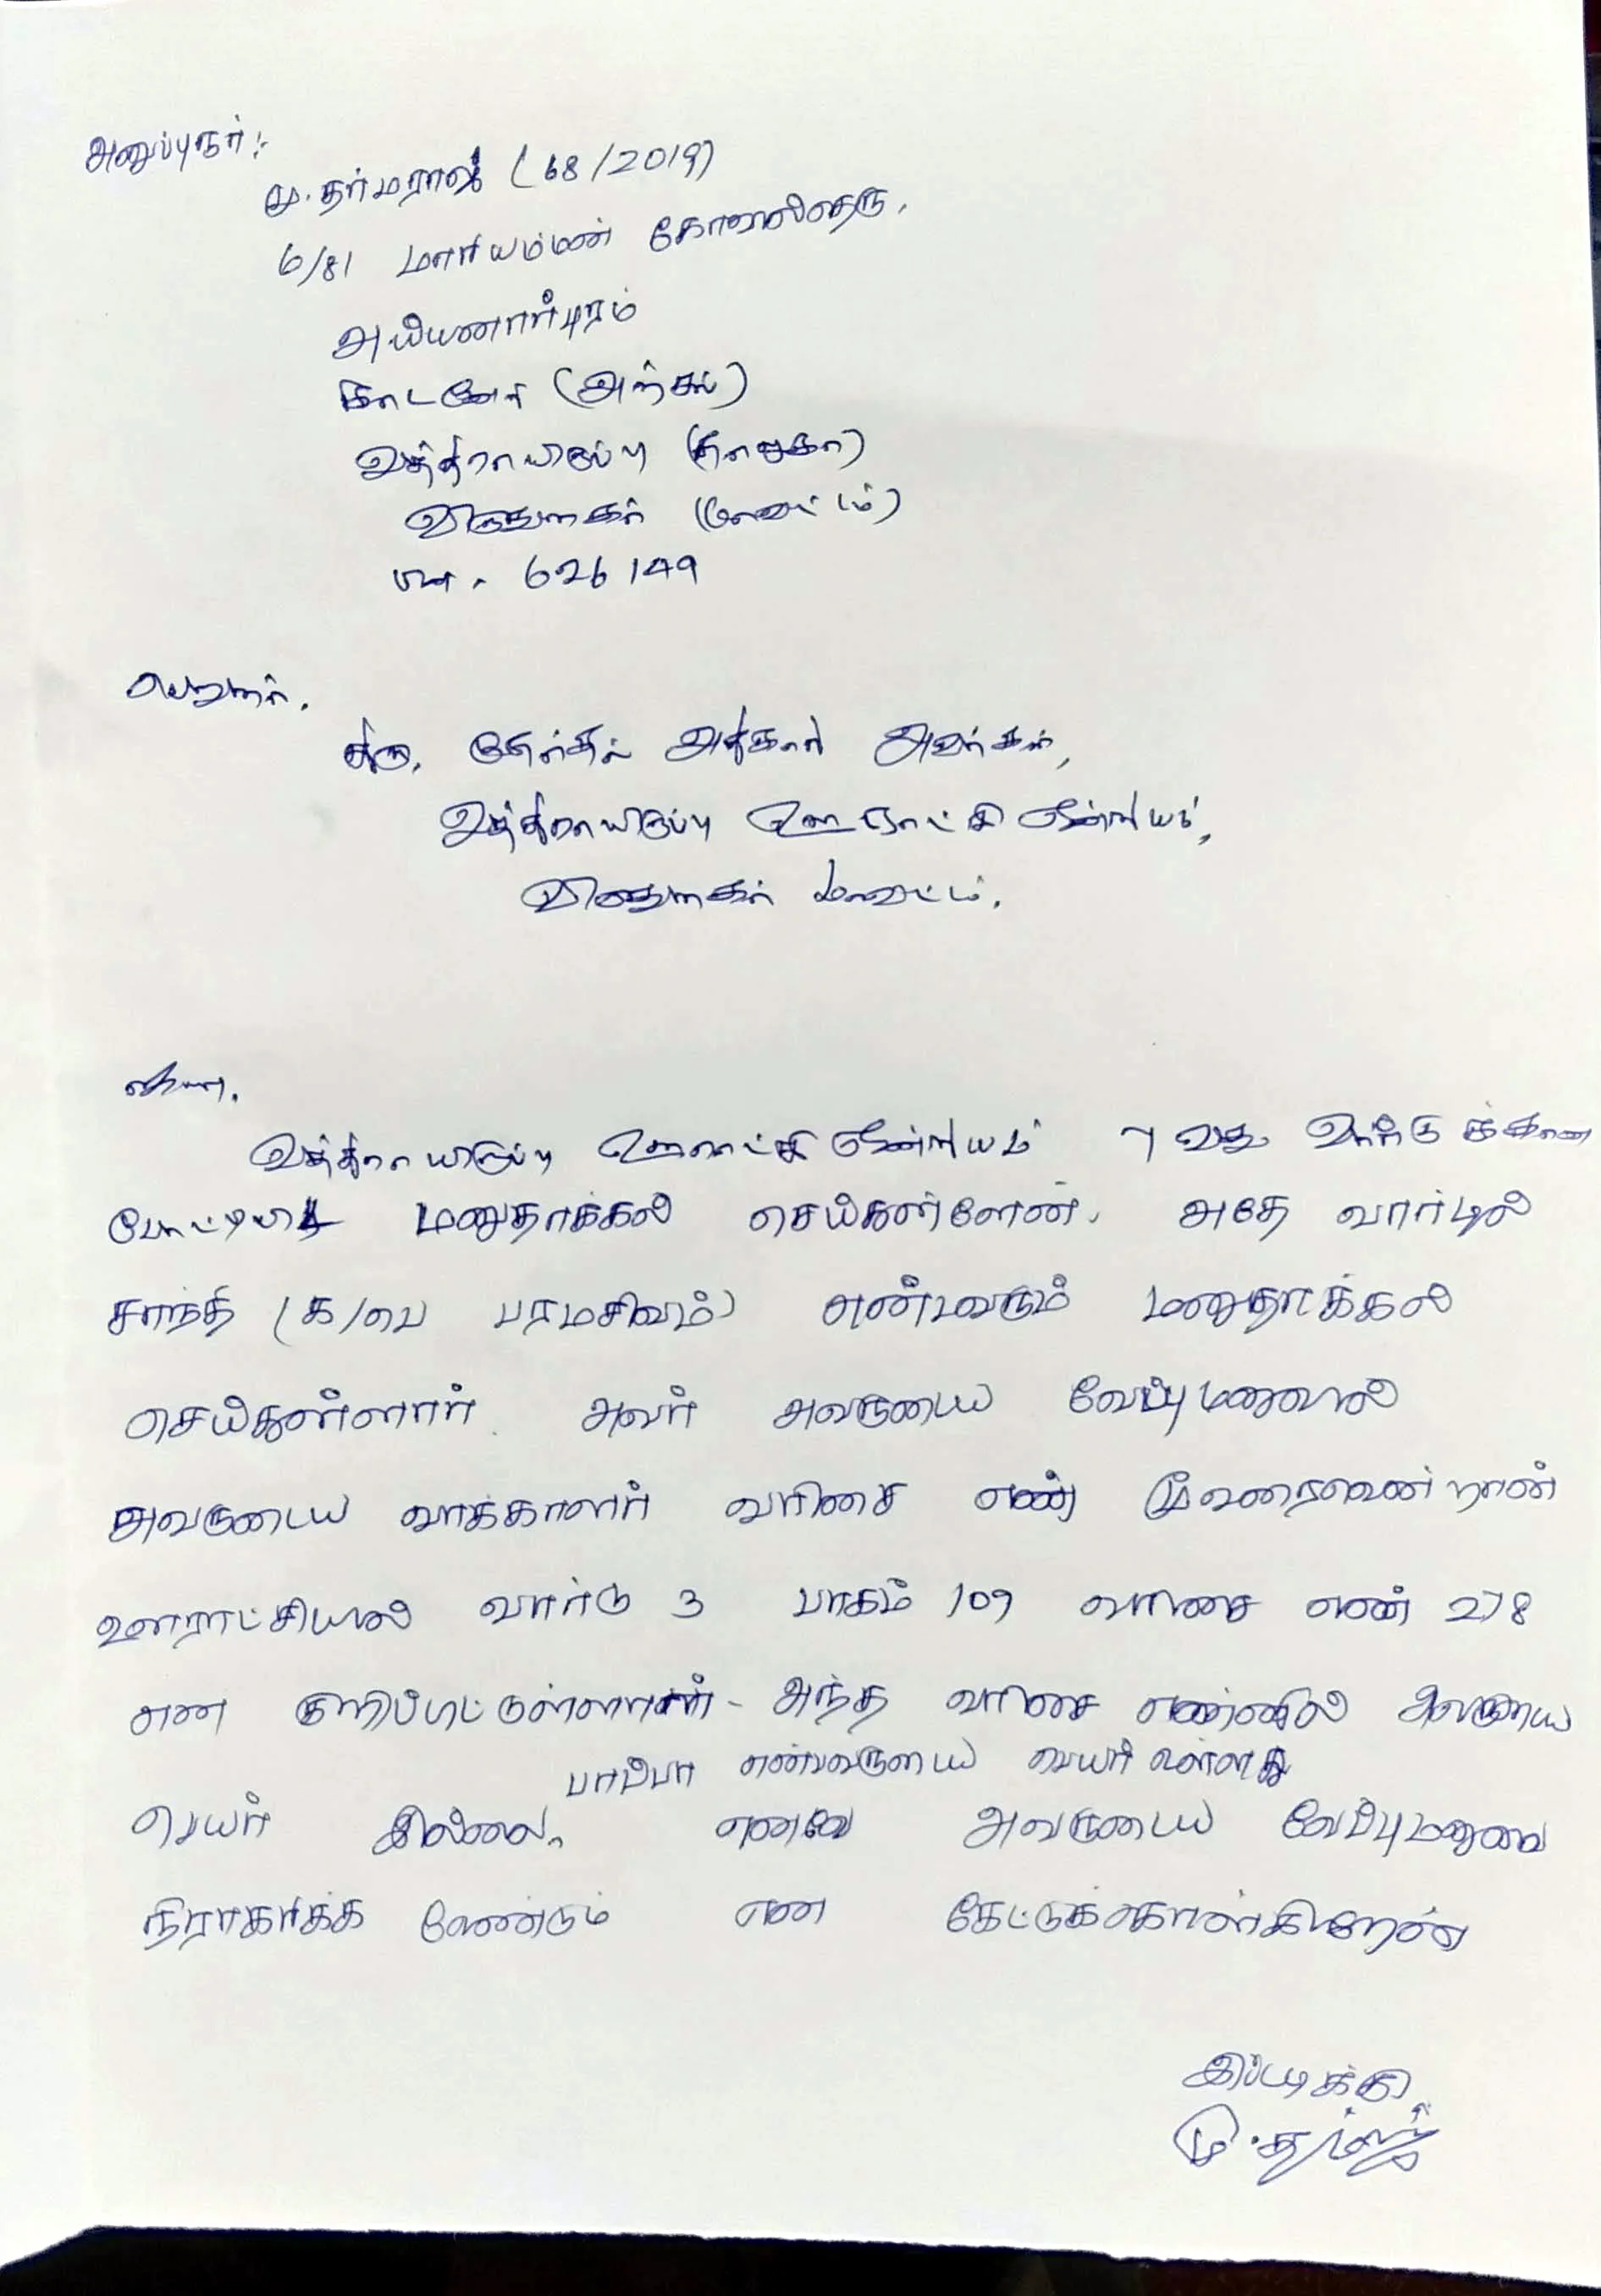 அனுப்புநர்:-
மு.தர்மராஜ் (68/2019)
6/81 மாரியம்மன் கோவில்தெரு,
அய்யனார்புரம்
கோட்டையூர் (அஞ்சல்)
வத்திராயிருப்பு (தாலுகா)
விருதுநகர் (மாவட்டம்)
பின். 626149
பெறுநர்.
திரு. தேர்தல் அதிகாரி அவர்கள்,
வத்திராயிருப்பு ஊராட்சி ஒன்றியம்,
விருதுநகர் மாவட்டம்.
ஐயா.
வத்திராயிருப்பு ஊராட்சி ஒன்றியம் 7 வது வார்டுக்கான
போட்டியிட மனுதாக்கல் செய்துள்ளேன். அதே வார்டில்
சாந்தி (க/பெ பரமசிவம்) என்பவரும் மனுதாக்கல்
செய்துள்ளார். அவர் அவருடைய வேப்புமனுவில்
அவருடைய வாக்காளர் வரிசை எண் மூவரைவென்றான்
ஊராட்சியில் வார்டு 3 பாகம் 109 வரிசை எண் 278
என குறிப்பிட்டுள்ளார். அந்த வரிசை எண்ணில் அவருடைய
பாப்பா என்பவருடைய பெயர் உள்ளது
பெயர் இல்லை. எனவே அவருடைய வேப்புமனுவை
நிராகரிக்க வேண்டும் என கேட்டுக்கொள்கிறேன்
இப்படிக்கு,
மு.தர்மராஜ்